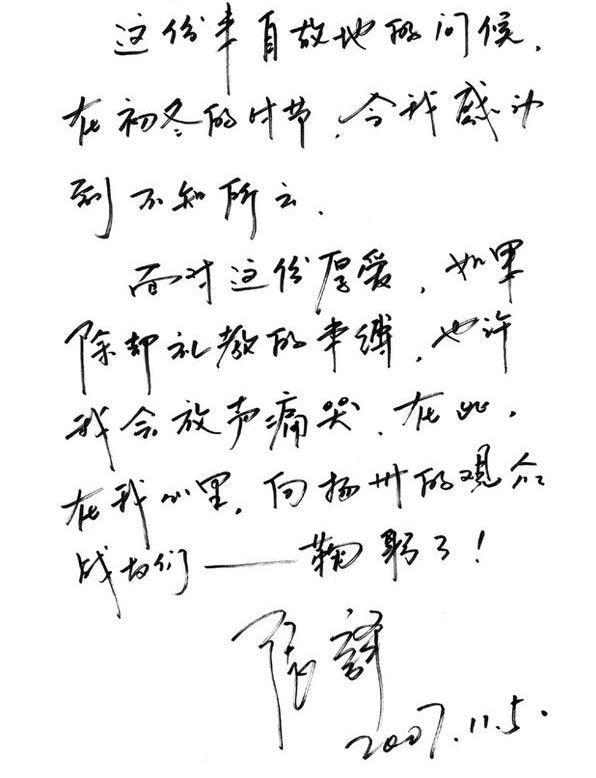 这份来自故地的问候，
在初冬的时节，令我感动
到不知所云．
面对这份厚爱，如果
除却礼教的束缚，也许
我会放声痛哭．在此，
在我心里，向扬州的观众
战友们——鞠躬了！
张译
2007.11.5.